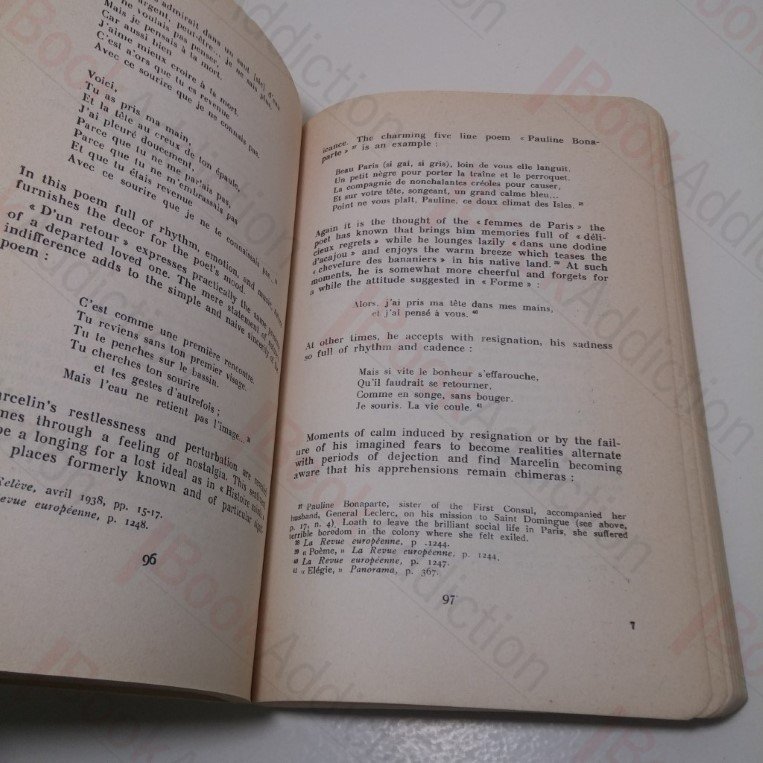 admirait dans un
argent, peut-être... je ne sais plus.
ne voulais pas penser
Mais je pensais à ta mort.
Car aussi bien
J'aime mieux croire à ta mort.
C'est alors que tu es revenue
Avec ce sourire que je ne connais pas.
Voici,
Tu as pris ma main,
Et la tête au creux de ton épaule,
J'ai pleuré doucement,
Parce que tu ne me parlais pas,
Parce que tu ne m'embrassais pas
Et que tu étais revenue
Avec ce sourire que je ne te connaissais pas.
In this poem full of rhythm, emotion, and
furnishes the decor for the poet's mood.
« D'un retour » expresses practically the same
of a departed loved one. The mere statement of
indifference adds to the simple and naive sincerity of the
poem :
C'est comme une première rencontre.
Tu reviens sans ton premier visage.
Tu te penches sur le bassin.
Tu cherches ton sourire
et tes gestes d'autrefois ;
Mais l'eau ne retient pas l'image...
arcelin's restlessness and perturbation are
nes through a feeling of nostalgia. This
be a longing for a lost ideal as in « Histoire
places formerly known and of particular
Relève, avril 1938, pp. 15-17.
Revue européenne, p. 1248.
96
icance. The charming five line poem « Pauline Bona-
parte » ³⁷ is an example :
Beau Paris (si gai, si gris), loin de vous elle languit,
Un petit nègre pour porter la traîne et le perroquet.
La compagnie de nonchalantes créoles pour causer,
Et sur votre tête, songeant, un grand calme bleu...
Point ne vous plaît, Pauline, ce doux climat des Isles. ³⁸
Again it is the thought of the « femmes de Paris » the
poet has known that brings him memories full of « déli-
cieux regrets » while he lounges lazily « dans une dodine
d'acajou » and enjoys the warm breeze which teases the
« chevelure des bananiers » in his native land. ³⁹ At such
moments, he is somewhat more cheerful and forgets for
a while the attitude suggested in « Forme » :
Alors, j'ai pris ma tête dans mes mains,
et j'ai pensé à vous. ⁴⁰
At other times, he accepts with resignation, his sadness
so full of rhythm and cadence :
Mais si vite le bonheur s'effarouche,
Qu'il faudrait se retourner,
Comme en songe, sans bouger.
Je souris. La vie coule. ⁴¹
Moments of calm induced by resignation or by the fail-
ure of his imagined fears to become realities alternate
with periods of dejection and find Marcelin becoming
aware that his apprehensions remain chimeras :
³⁷ Pauline Bonaparte, sister of the First Consul, accompanied her
husband, General Leclerc, on his mission to Saint Domingue (see above,
p. 17, n. 4). Loath to leave the brilliant social life in Paris, she suffered
terrible boredom in the colony where she felt exiled.
³⁸ La Revue européenne, p. 1244.
³⁹ « Poème, » La Revue européenne, p. 1244.
⁴⁰ La Revue européenne, p. 1247.
⁴¹ « Elégie, » Panorama, p. 367.
97
7
Book Addiction